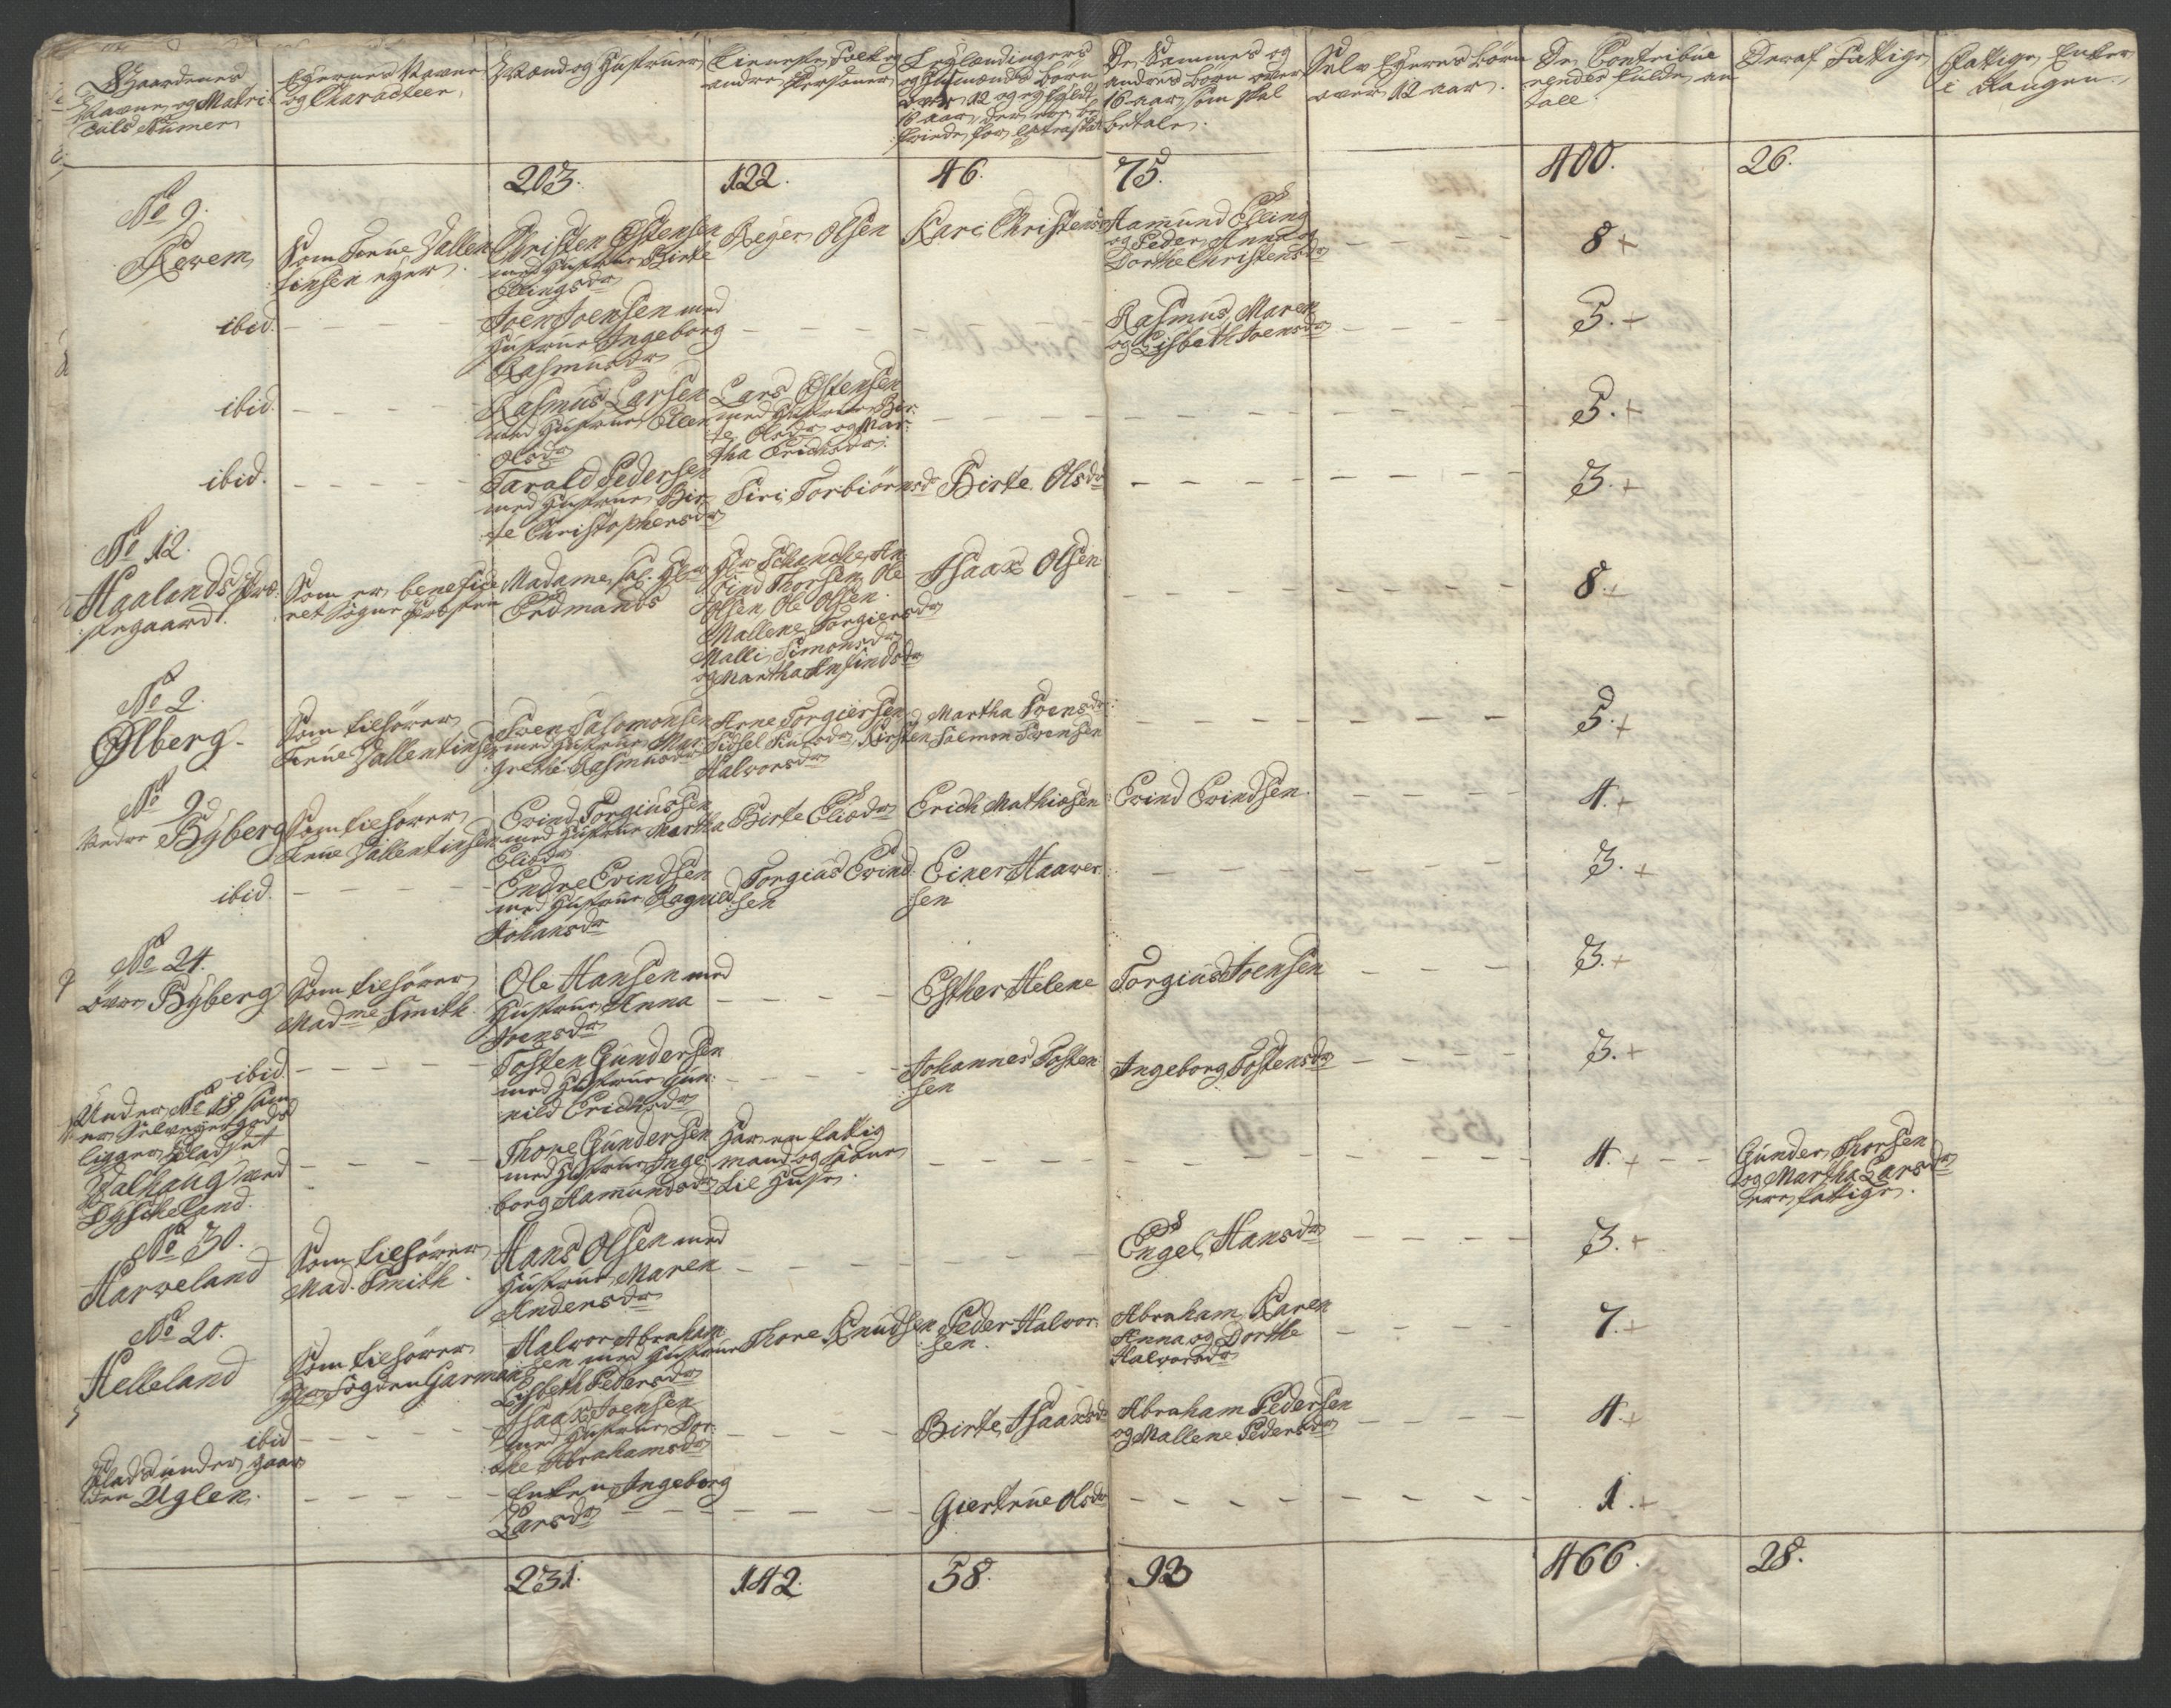 Gaardenes
Navne og Matri-
culs Numer
Eyernes Navne
og Characteer
Mænd og Hustruer
Tieneste Folk og
andre Personer
Leylændingers
og Husmænds børn
over 12 og ey fyldt
16 aar, der ere be-
friede for Extraskat
De Sammes og
andres børn over
16 aar, som skal
betale.
Selv Eyeres børn
over 12 aar.
De Contribue-
rendes fulde an-
tall.
Deraf Fattige
Fattige Enker
i Laugen
203.
122.
46.
75.
400.
26.
No 9.
Revem
Som Frue Vallen-
tinsen eyer
Christen Østensen
med Hustrue Birte
Ellingsdr
Reyer Olsen
Kari Christensdr
Aamund Elling
og Peder, Anna og
Dorthe Christensdr
8 +
ibid.
Joen Joensen med
Hustrue Ingeborg
Rasmusdr
Rasmus, Maren
og Lisbeth Joensdr
5. +
ibid.
Rasmus Larsen
med Hustrue Elen
Olsdr
Lars Østensen
med Hustrue Bir-
te Olsdr og Mar-
tha Erichsdr.
5. +
ibid.
Tarald Pedersen
med Hustrue Bir-
te Christophersdr
Siri Torbiörnsdr
Birte Olsdr
3. +
No 12.
Haalands Præ-
stegaard.
Som er benefice-
ret Sogne Præsten
Madame Sal. Hr
Erdmands
Hr Schanche, An-
find Thorsen, Ole
Olsen, Ole Olsen.
Mallene Torgiersdr
Malli Simonsdr
og Martha Anfindsdr
Isaax Olsen
8. +
No 2.
Ølberg.
Som tilhører
Frue Vallentinsen
Sven Salomonsen
med Hustrue Mar-
grethe Rasmusdr
Arne Torgiersen
Sidsel Knudsdr, Kirsten
Halvorsdr
Martha Svensdr
Salmon Svensen
5. +
No 9
Nedre Byberg
Som tilhører
Frue Vallentinsen
Evind Torgiussen
med Hustrue Martha
Eliasdr
Birte Eliasdr
Erich Mathiasen
Evind Evindsen
4. +
ibid.
Endre Evindsen
med Hustrue Ragnild
Johansdr
Torgius Evind-
sen
Einer Haaver-
sen
3. +
No 24.
Øvre Byberg
Som tilhører
Madme Smith
Ole Hansen med
Hustrue Anna
Joensdr
Esther Helene
Torgius Joensen
3. +
ibid
Tosten Gundersen
med Hustrue Gun-
nild Erichsdr
Johannes Tosten-
sen
Ingeborg Tostensdr
3. +
Under No 18 som
er Selveyergods
ligger Pladset
Dalhaug med
Dyscheland.
Thore Gundersen
med Hustrue Inge-
borg Aamundsdr
Har en fattig
mand og Kone
til Huse.
4. +
Gunder Thorsen
og Martha Larsdr
ere fattige.
No 30.
Harveland
Som tilhører
Mad. Smith
Hans Olsen med
Hustrue Maren
Andersdr
Engel Hansdr
3. +
No 20.
Helleland
Som tilhører
Hr Fogden Garmann
Halvor Abraham-
sen med Hustrue
Lisbeth Pedersdr
Thore Knudsen
Peder Halvor-
sen.
Abraham, Karen
Anna og Dorthe
Halvorsdr
7. +
ibid
Isaax Joensen
med Hustrue Dor-
the Abrahamsdr
Birte Isaaxsdr
Abraham Pedersen
og Mallene Pedersdr
4. +
Plads under gaar-
den Uglen.
Enken Ingeborg
Larsdr
Giertrue Olsdr
1. +
231.
142.
58.
93
466.
28.